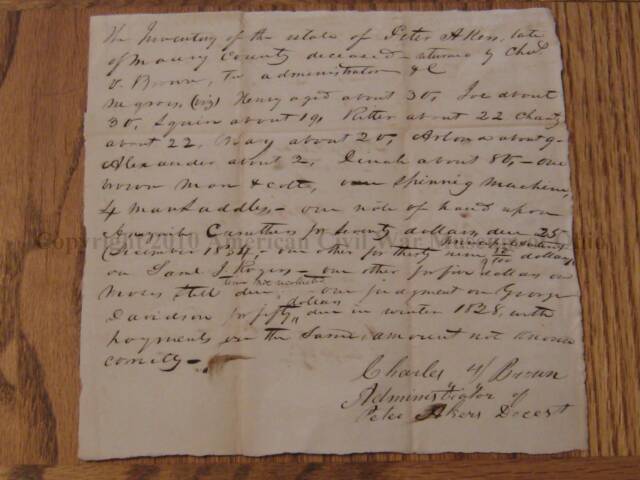 An Inventory of the estate of Peter Akers, late
of Maury County deceased – returned by Chs.
V. Brown, the administrator &c
Negroes, (viz) Henry aged about 30, Joe about
30, Squire about 19, Ritter about 22 Charity
about 22, about 20, about 9-
Alexander about 2, Dinah about 80, – one
brown Mare & colt, one Spinnig Machine,
4 – one note of hand upon
Caruthers for twenty dollars, due 25
Copyright 2010 American Civil War
December 1834, – one other for thirty nine 12/100 dollars
on Saml J. Rogers – one other for five dollars on
Moses Still due time not recollected – one judgment on George
Davidson for fifty dollars due in winter 1828, with
payments on the Same, amount not known
– 
Charles V Brown
Administrator of
Peter Akers Decest